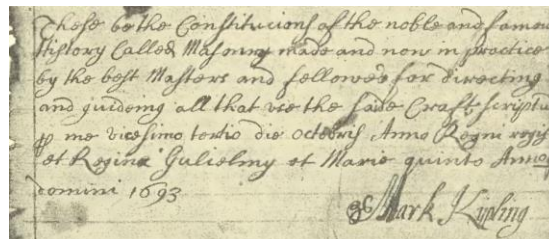 These be the Constitucions of the noble and famous
History Called Masonry made and now in practice
by the best Masters and fellowes for directing
and guideing all that use the said Craft scriptu
p me vicesimo tertio die octobris Anno Regni regis
et Regina Gulielmy et Marie quinto Anno
domini 1693
Mark Kipling